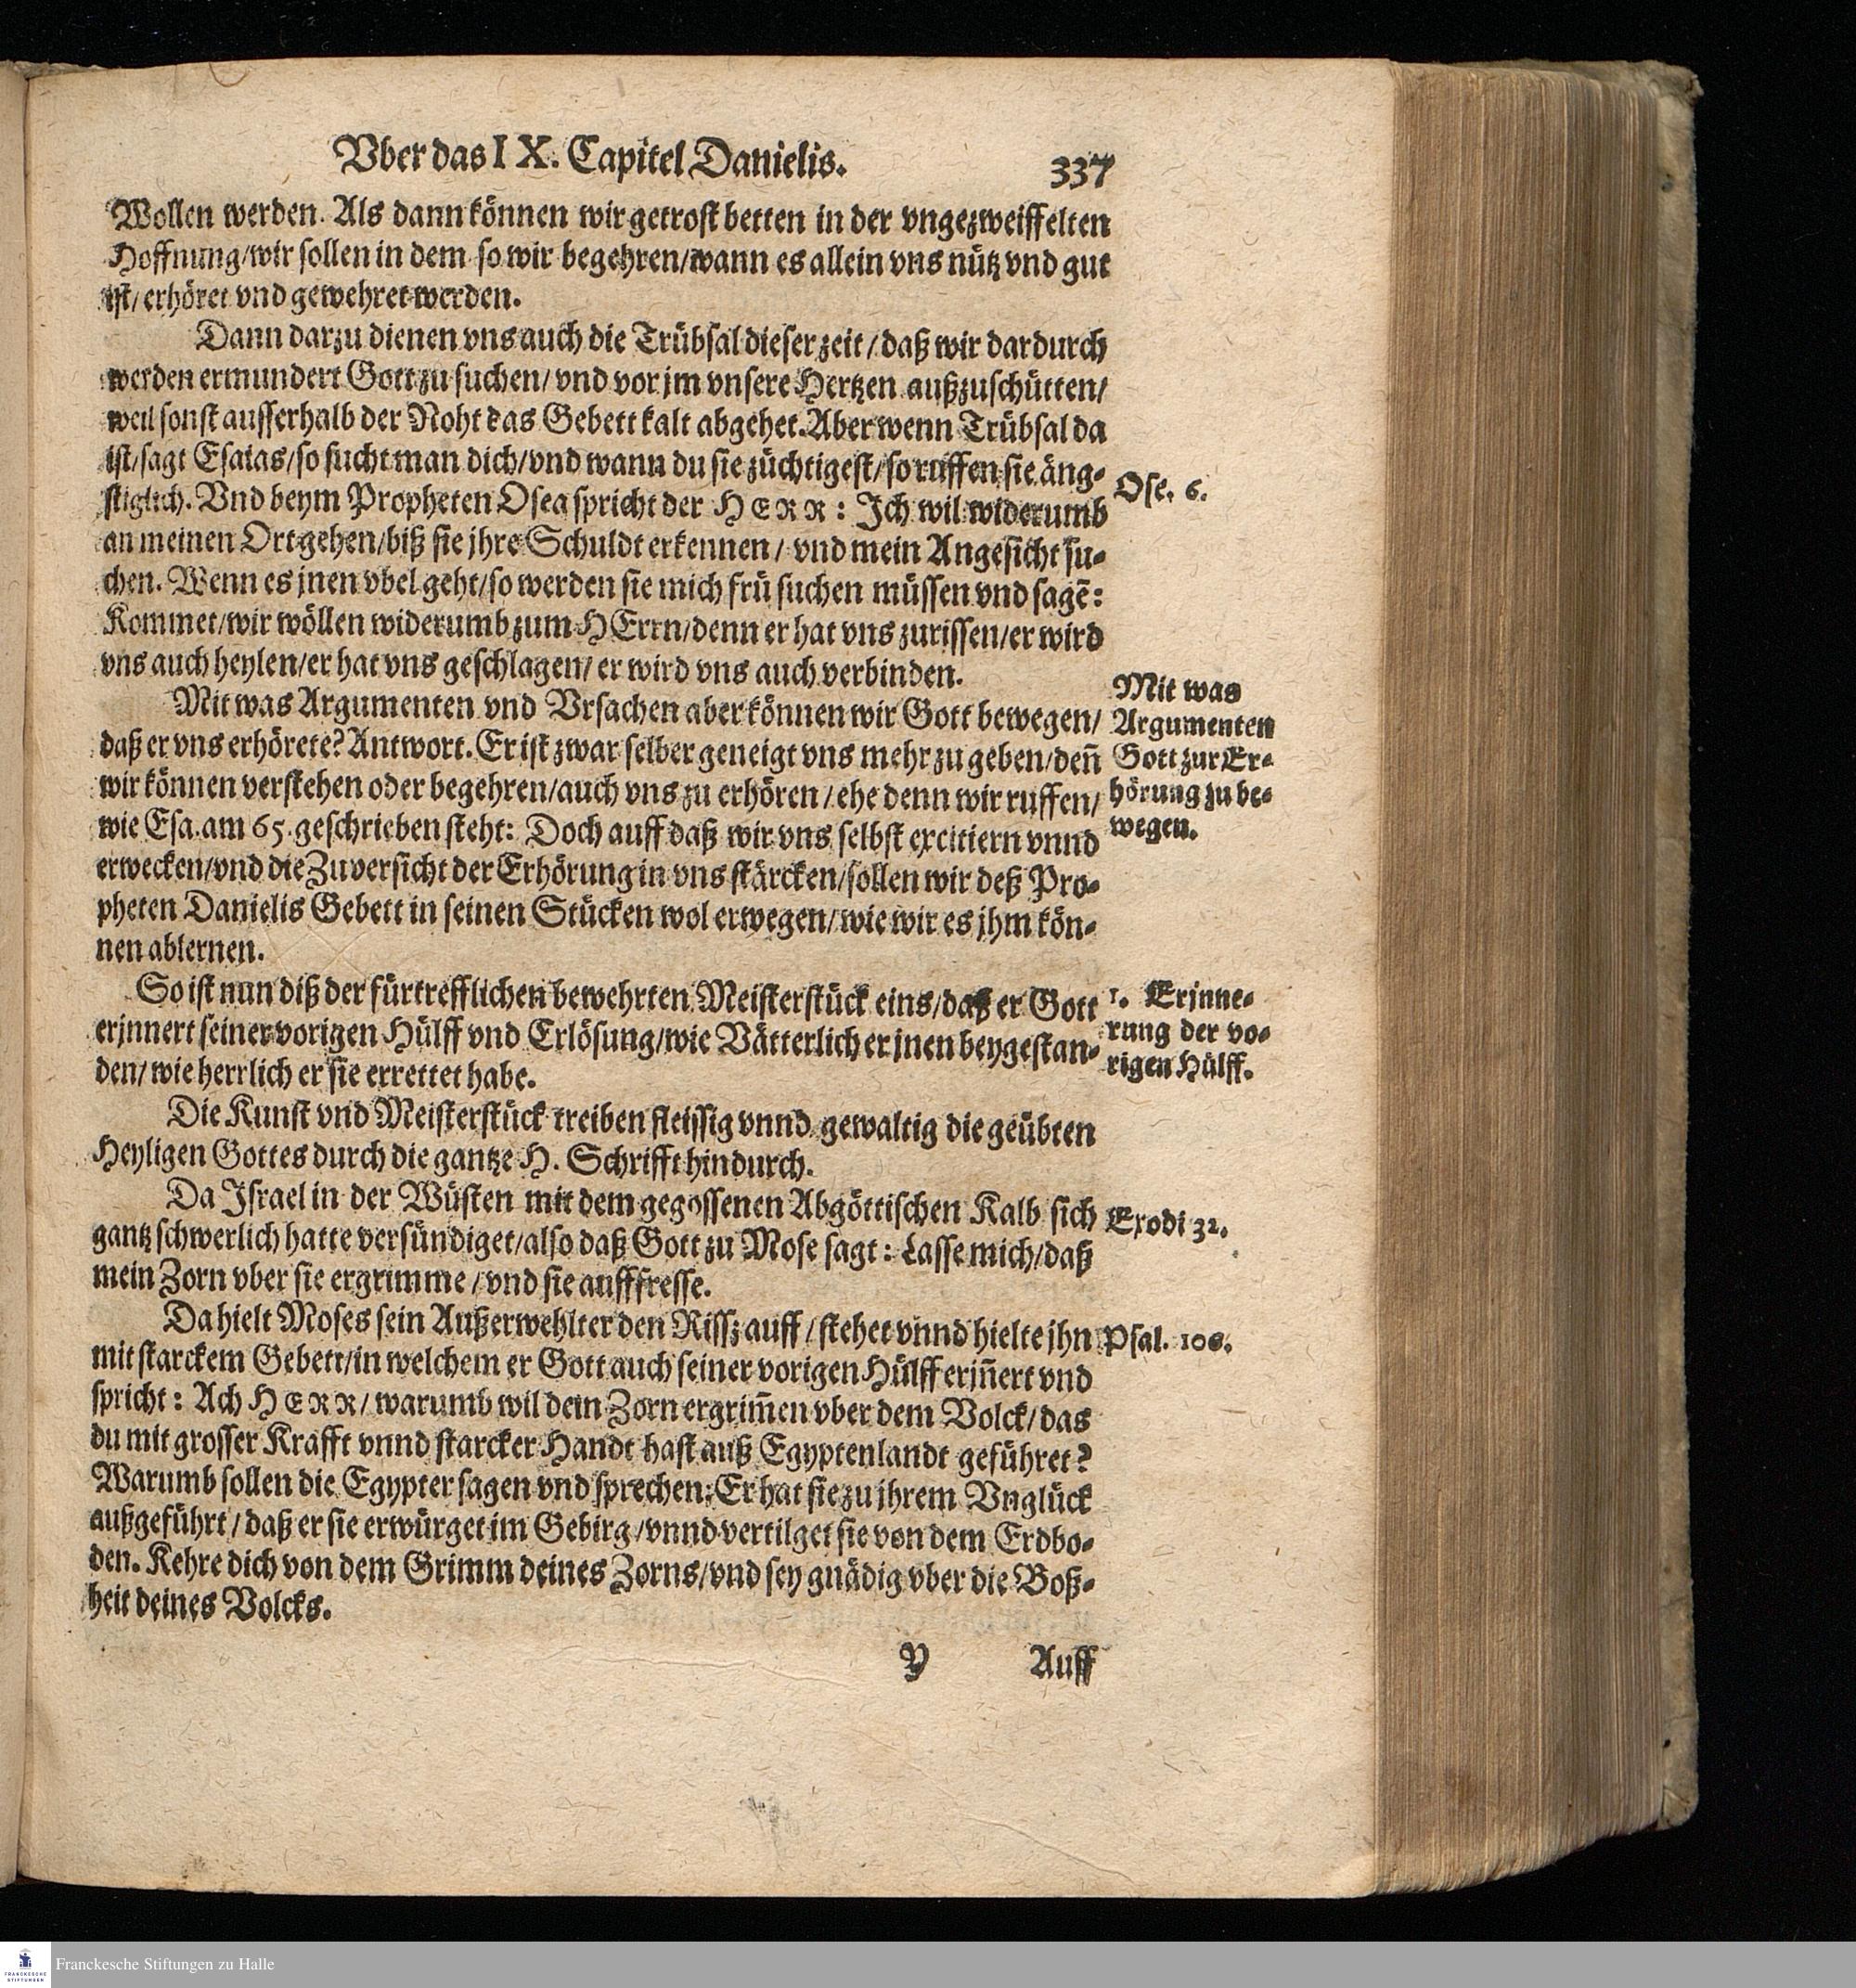 Vber das IX. Capitel Danielis. 337
Wollen werden. Als dann können wir getrost betten in der vngezweiffelten
Hoffnung/wir sollen in dem so wir begehren/wann es allein vns nütz vnd gut
ist/erhöret vnd gewehret werden.
Dann darzu dienen vns auch die Trübsal dieser zeit/daß wir dardurch
werden ermundert Gott zu suchen/vnd vor jm vnsere Hertzen außzuschütten/
weil sonst ausserhalb der Noht das Gebett kalt abgehet. Aber wenn Trübsal da
ist/sagt Esaias/so sucht man dich/vnd wann du sie züchtigest/so ruffen sie äng-
stiglich. Vnd beym Propheten Osea spricht der HERR: Ich wil widerumb
Ose. 6.
an meinen Ort gehen/biß sie jhre Schuldt erkennen/vnd mein Angesicht su-
chen. Wenn es jnen vbel geht/so werden sie mich frü suchen müssen vnd sagē:
Kommet/wir wöllen widerumb zum HErrn/denn er hat vns zurissen/er wird
vns auch heylen/er hat vns geschlagen/er wird vns auch verbinden.
Mit was Argumenten vnd Vrsachen aber können wir Gott bewegen/
daß er vns erhörete? Antwort. Er ist zwar selber geneigt vns mehr zu geben/den̄
wir können verstehen oder begehren/auch vns zu erhören/ehe denn wir ruffen/
wie Esa. am 65. geschrieben steht: Doch auff daß wir vns selbst excitiern vnnd
erwecken/vnd die Zuversicht der Erhörung in vns stärcken/sollen wir deß Pro-
pheten Danielis Gebett in seinen Stücken wol erwegen/wie wir es jhm kön-
nen ablernen.
Mit was
Argumenten
Gott zur Er-
hörung zu be-
wegen.
So ist nun diß der fürtrefflichen bewehrten Meisterstück eins/daß er Gott
erjnnert seiner vorigen Hülff vnd Erlösung/wie Vätterlich er jnen beygestan-
den/wie herrlich er sie errettet habe.
1. Erjnne-
rung der vo-
rigen Hülff.
Die Kunst vnd Meisterstück treiben fleissig vnnd gewaltig die geübten
Heyligen Gottes durch die gantze H. Schrifft hindurch.
Da Israel in der Wüsten mit dem gegossenen Abgöttischen Kalb sich
Exodi 32.
gantz schwerlich hatte versündiget/also daß Gott zu Mose sagt: Lasse mich/daß
mein Zorn vber sie ergrimme/vnd sie aufffresse.
Da hielt Moses sein Außerwehlter den Rissz auff/stehet vnnd hielte jhn
Psal. 106.
mit starckem Gebett/in welchem er Gott auch seiner vorigen Hülff erjn̄ert vnd
spricht: Ach HERR/warumb wil dein Zorn ergrim̄en vber dem Volck/das
du mit grosser Krafft vnnd starcker Handt hast auß Egyptenlandt geführet?
Warumb sollen die Egypter sagen vnd sprechen: Er hat sie zu jhrem Vnglück
außgeführt/daß er sie erwürget im Gebirg/vnnd vertilget sie von dem Erdbo-
den. Kehre dich von dem Grimm deines Zorns/vnd sey gnädig vber die Boß-
heit deines Volcks.
Y Auff
FRANCKESCHE STIFTUNGEN
Franckesche Stiftungen zu Halle